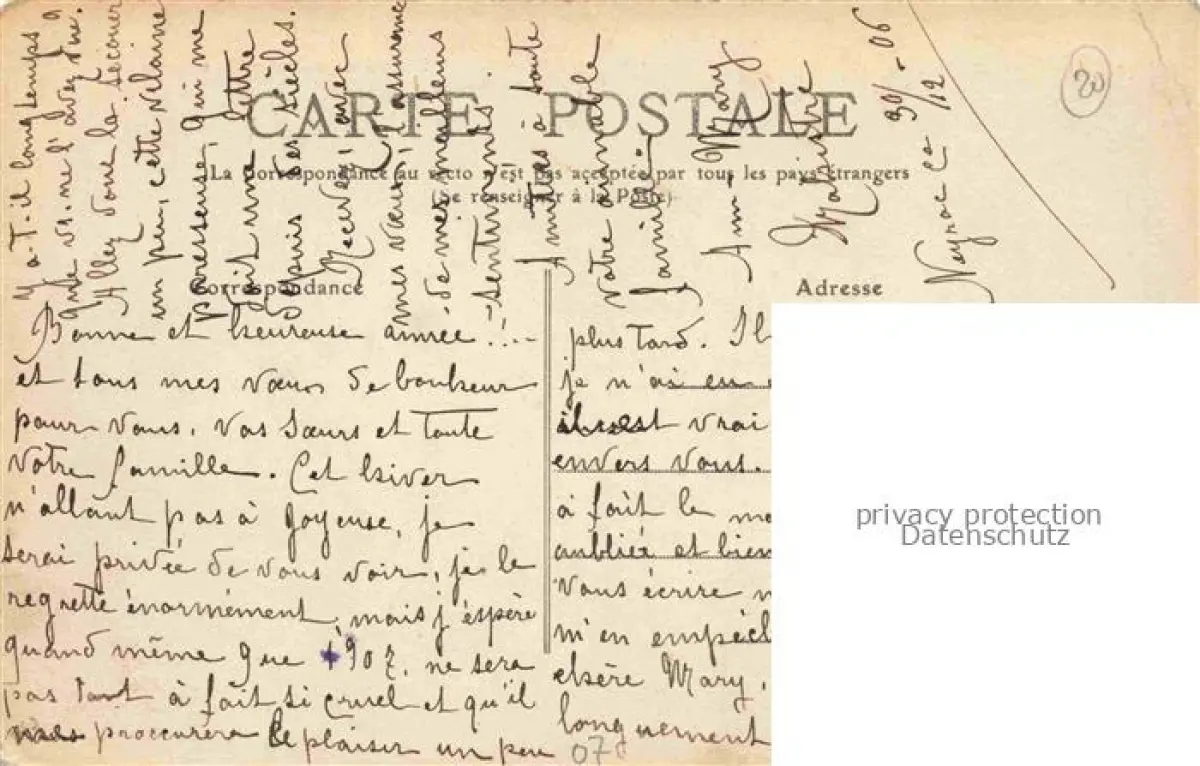 CARTE POSTALE
La Correspondance au recto n'est pas acceptée par tous les pays étrangers
(Se renseigner à la Poste)
Correspondance
Adresse
20
Bonne et heureuse année !!..
et tous mes vœux de bonheur
pour vous, vos sœurs et toute
votre famille. Cet hiver
n'allant pas à Joyeuse, je
serai privée de vous voir, je le
regrette énormément, mais j'espère
quand même que 1907, ne sera
pas tout à fait si cruel et qu'il
me procurera le plaisir un peu
plus tard. Il
je n'ai eu
il est vrai
envers vous.
à fait le
oubliée et bien
vous écrire
m'en empêch
chère Mary,
longuement
07
Y a-t-il longtemps
que vs. ne l'avez vue.
Allez donc la secouer
un peu, cette vilaine
paresseuse, qui me
doit une lettre
depuis des siècles.
Recevez, avec
mes vœux, l'assurance
de mes meilleurs
sentiments.
Amitiés à toute
votre aimable
famille.
Mary
Neyrac
30/12-06
privacy protection
Datenschutz